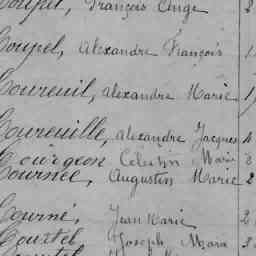 Coupel, François Ange
Coupel, Alexandre François
Coureuil, Alexandre Marie
Coureuille, Alexandre Jacques 4
Courgeon Célestin Marie
Cournée, Augustin Marie 2
Courné, Jean Marie 2
Courtel, Joseph Marie